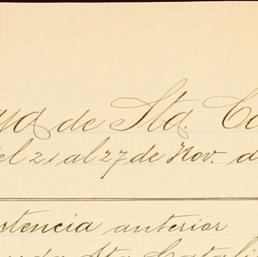 ya de Sta. Ca
del 21 al 27 de Nov. d
stencia anterior
Sta Catali